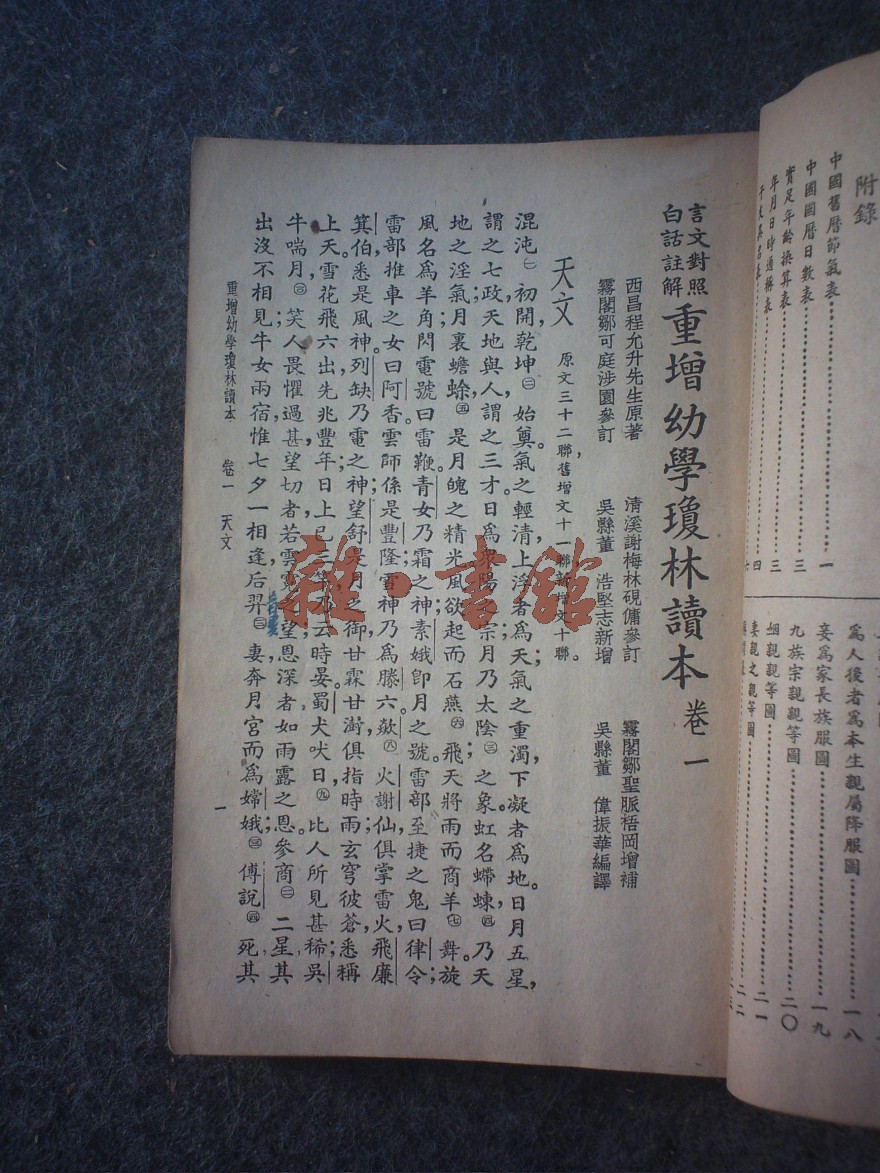 附錄
中國舊曆節氣表……一
中國國曆日數表……三
實足年齡換算表……三
年月日時通稱表……四
為人後者為本生親屬降服圖……一八
妾為家長族服圖……一九
九族宗親親等圖……二〇
姻親親等圖……二一
妻親之親等圖……二二
言文對照
白話註解
重增幼學瓊林讀本 卷一
西昌程允升先生原著
清溪謝梅林硯傭參訂
霧閣鄒聖脈梧岡增補
霧閣鄒可庭涉園參訂
吳縣董 浩堅志新增
吳縣董 偉振華編譯
天文 原文三十二聯，舊增文十一聯，新增文十聯。
混沌㊀初開，乾坤㊁始奠。氣之輕清上浮者為天，氣之重濁下凝者為地。日月五星，
謂之七政；天地與人，謂之三才。日為衆陽之宗，月乃太陰㊂之象。虹名螮蝀㊃，乃天
地之淫氣；月裏蟾蜍㊄，是月魄之精光。風欲起而石燕㊅飛，天將雨而商羊㊆舞。旋
風名為羊角，閃電號曰雷鞭。青女乃霜之神，素娥卽月之號。雷部至捷之鬼曰律令；
雷部推車之女曰阿香。雲師係是豐隆，雪神乃為滕六。歘㊇火謝仙，俱掌雷火；飛廉
箕伯，悉是風神。列缺乃電之神，望舒是月之御。甘霖甘澍，俱指時雨；玄穹彼蒼，悉稱
上天。雪花飛六出，先兆豐年；日上已三竿，乃云時晏。蜀犬吠日㊈，比人所見甚稀；吳
牛喘月㊉，笑人畏懼過甚。望切者若雲霓之望，恩深者如雨露之恩。參商二星，其
出沒不相見；牛女兩宿，惟七夕一相逢。后羿妻，奔月宮而為嫦娥；傅說死，其
重增幼學瓊林讀本 卷一 天文
一
雜·書館